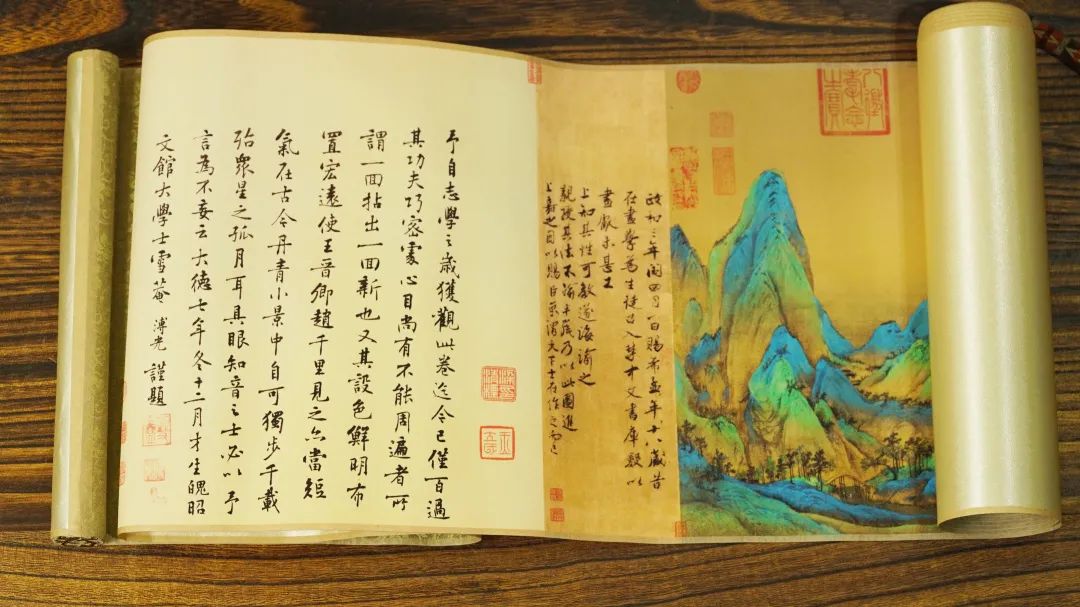 政和三年閏四月一日賜希孟年十八歲昔
在畫學為生徒召入禁中文書庫數以
畫獻未甚工
上知其性可教遂誨諭之
親授其法不踰半歲乃以此圖進
上嘉之因以賜臣京謂天下士在作之而已
予自志學之歲獲觀此卷迄今已僅百過
其功夫巧密處心目尚有不能周遍者所
謂一面拈出一面新也又其設色鮮明布
置宏遠使王晉卿趙千里見之亦當短
氣在古今丹青小景中自可獨步千載
殆眾星之孤月耳具眼知音之士必以予
言為不妄云大德七年冬十二月才生魄昭
文館大學士雪菴溥光謹題